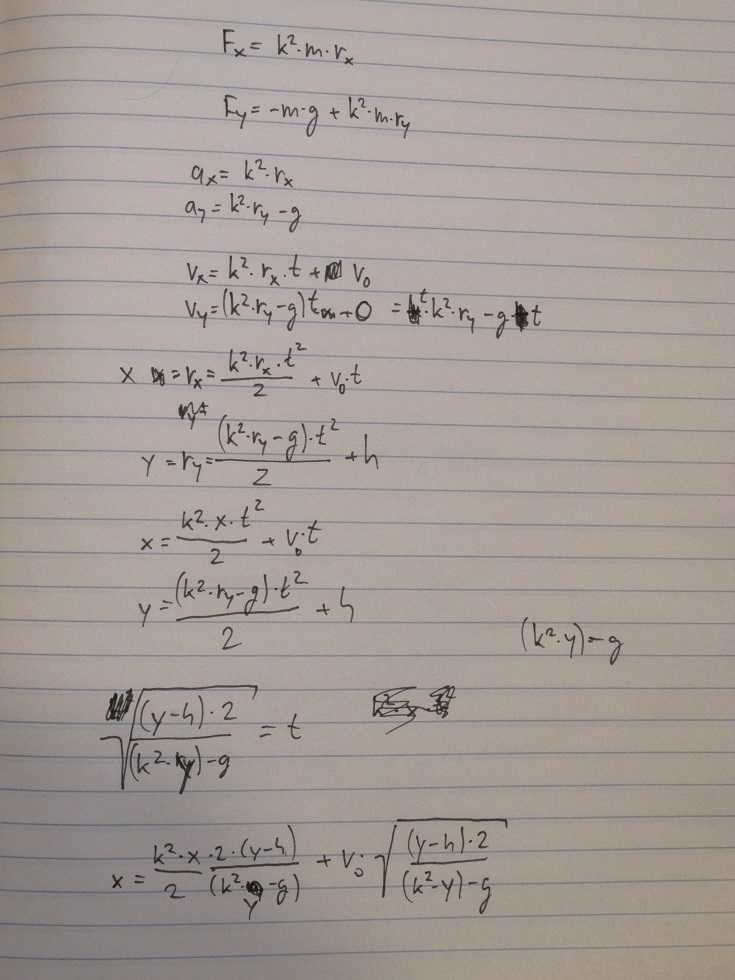 Fx = k²·m·rx
Fy = -m·g + k²·m·ry
ax = k²·rx
ay = k²·ry - g
vx = k²·rx·t + v₀
vy = (k²·ry - g)t + 0 = t·k²·ry - g t
x = rx = k²·rx·t²/2 + v₀·t
y = ry = (k²·ry - g)·t²/2 + h
x = k²·x·t²/2 + v₀·t
y = (k²·ry - g)·t²/2 + h
(k²·y) - g
√((y-h)·2/((k²·ry) - g)) = t
x = k²·x/2 · 2·(y-h)/(k²·y - g) + v₀·√((y-h)·2/((k²-y) - g))